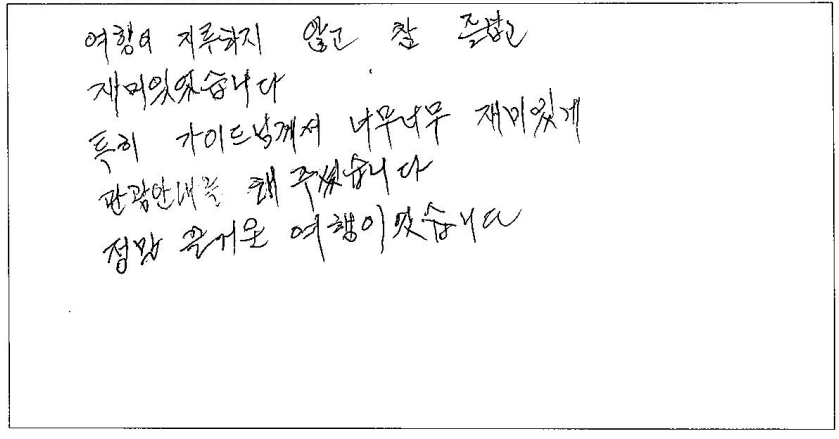 여행이 지루하지 않고 참 즐겁고
재미있었습니다
특히 가이드님께서 너무너무 재미있게
관광안내를 해 주셨습니다
정말 즐거운 여행이었습니다